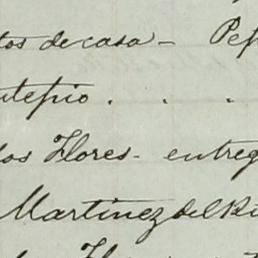 tos de casa - Pep
utepio . . .
los Flores - entreg
Martinez del Ri